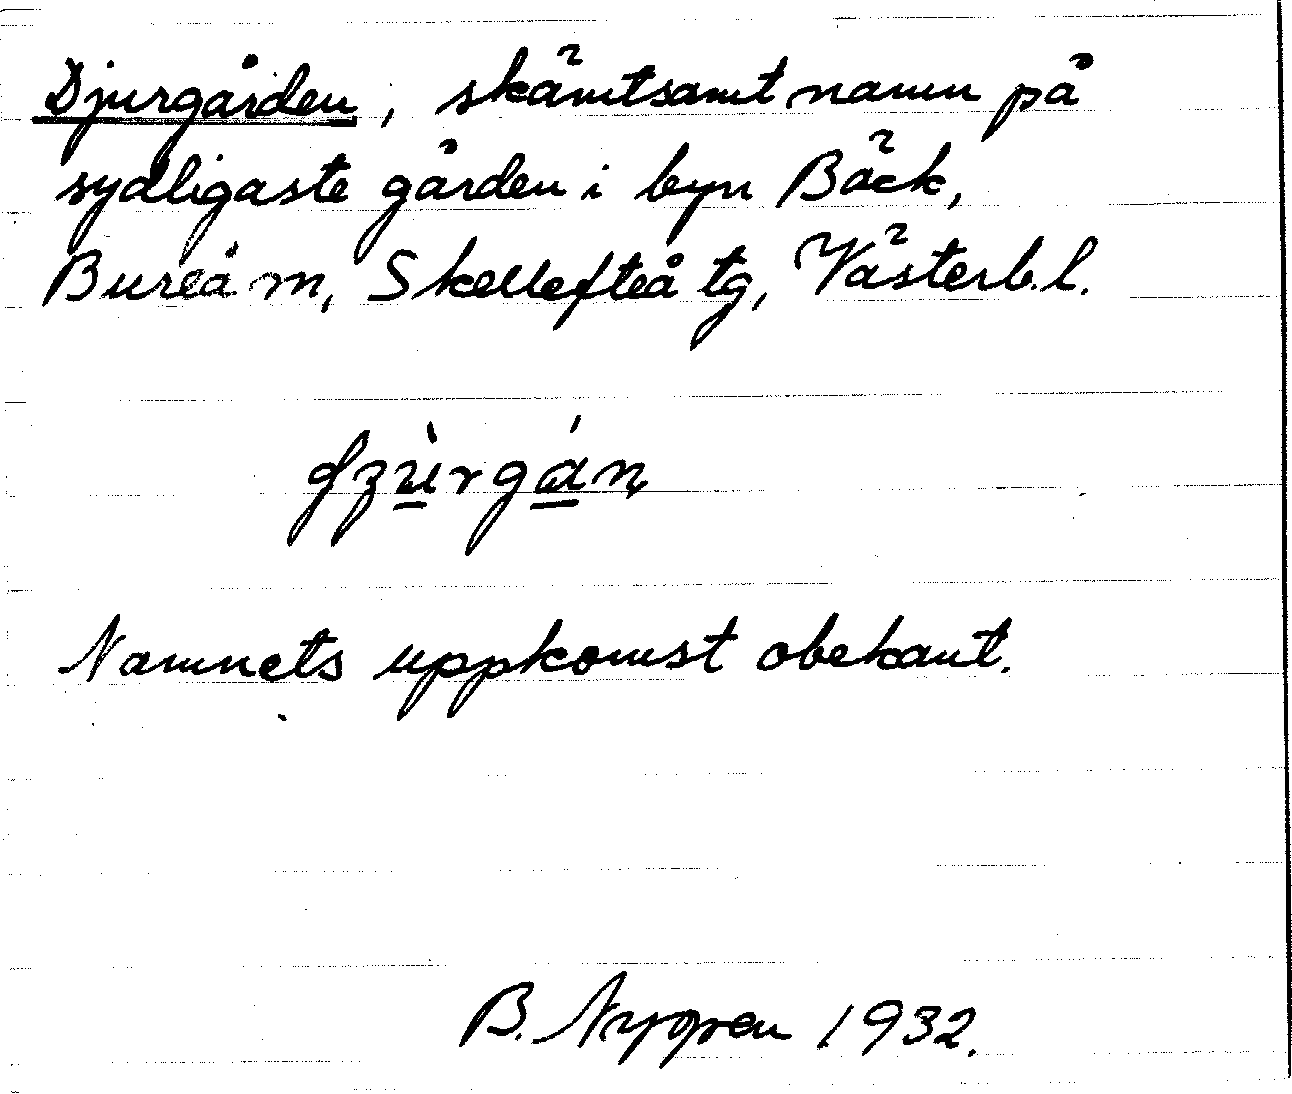 Djurgården, skämtsamt namn på
sydligaste gården i byn Bäck,
Bureå m, Skellefteå tg, Västerb.l.
Namnets uppkomst obekant.
B. Nygren 1932.